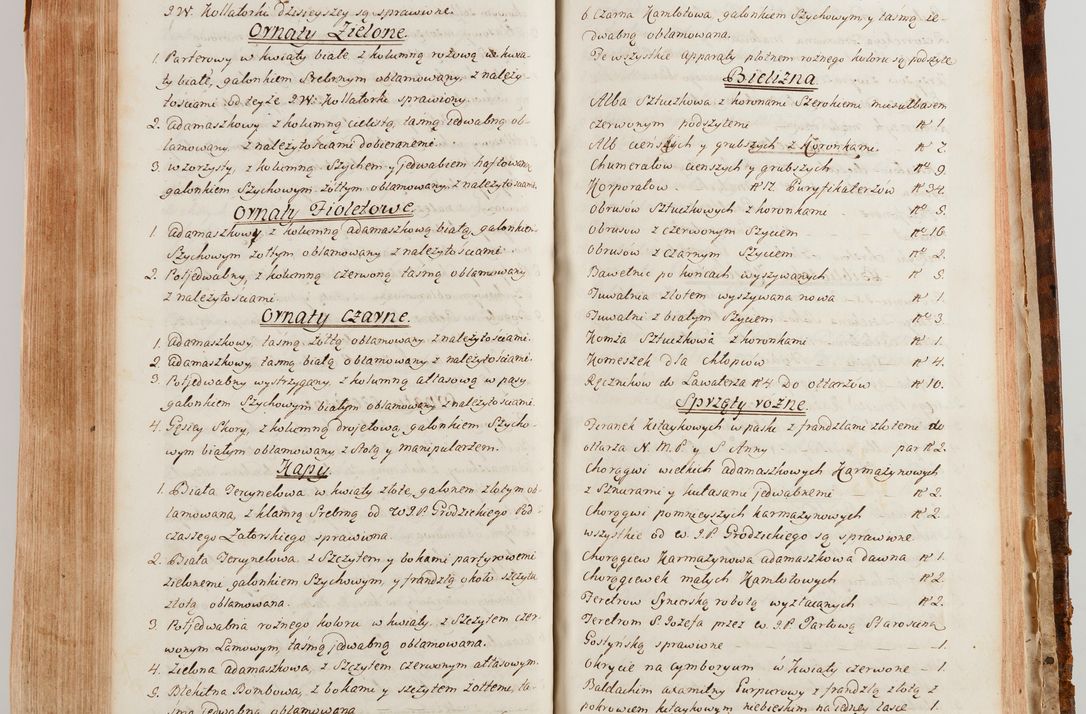 J.W. Kollatorki Dzisieyszey są sprawione.
Ornaty Zielone.
1. Parterowy w kwiaty białe z kolumną rożową w kwia-
ty białe, galonkiem Srebrnym oblamowany, z należy-
tosciami od teyże J.W. Kollatorki sprawiony.
2. adamaszkowy z kolumną cielistą, tasmą jedwabną ob-
lamowany z należytosciami dobieranemi.
3. wzorzysty, z kolumną Szychem y jedwabiem haftowaną
galonkiem Szychowym żołtym oblamowany z należytosciami.
Ornaty Fioletowe.
1. adamaszkowy z kolumną adamaszkową białą, galonkiem
Szychowym żołtym oblamowany z należytosciami.
2. Połjedwabny, z kolumną czerwoną tasmą oblamowany
z należytosciami.
Ornaty Czarne.
1. adamaszkowy, tasmą żołtą oblamowany, z należytosciami.
2. adamaszkowy, tasmą białą oblamowany z należytosciami.
3. Połjedwabny wystrzygany, z kolumną atłasową w pasy
galonkiem Szychowym białym oblamowany z należytosciami.
4. Gęsiey Skory, z kolumną drojetową, galonkiem Szycho-
wym białym oblamowany z Stołą y manipularzem.
Kapy
1. Biała Tercynelowa w kwiaty złote, galonem złotym ob-
lamowana, z klamrą Srebrną od W.J.P. Grodzickiego Pod-
czaszego Zatorskiego sprawiona.
2. Biała Tercynelowa, z Szczytem y bokami partyrowemi
zielonemi galonkiem Szychowym, y frandzlą około szczytu
złotą oblamowana.
3. Połjedwabna rożnego koloru w kwiaty, z Szczytem czer-
wonym Lamowym, tasmą jedwabną oblamowana.
4. Zielona adamaszkowa, z Szczytem czerwonym atłasowym.
5. Błękitna Bombowa, z bokami y szczytem żołtemi, ta-
smą jedwabną oblamowana.
6. Czarna Kamlotowa, galonkiem Szychowym y tasmą je-
dwabną oblamowana.
Te wszystkie apparaty płotnem rożnego koloru są podszyte
Bielizna
Alba Sztuczkowa z koronami Szerokiemi musułbasem
czerwonym podszytemi N° 1.
Alb cienszych y grubszych z Koronkami N° 7.
Chumerałow cienszych y grubszych N° 9.
Korporałow. N° 17. Puryfikaterzow N° 34.
Obrusow Sztuczkowych z koronkami N° 5.
Obrusow z czerwonym Szyciem N° 16.
Obrusow z Czarnym Szyciem N° 2.
Bawełnic po końcach wyszywanych N° 5.
Tuwalnia złotem wyszywana nowa N° 1.
Tuwalni z białym Szyciem N° 3.
Komża Sztuczkowa z koronkami N° 1.
Komeszek dla Chłopcow N° 4.
Ręcznikow do Lawaterza N° 4 Do ołtarzow N° 10.
Sprzęty rożne.
Firanek kitaykowych w paski z frandzlami złotemi do
ołtarza N. M. P. y S. Anny par N° 2.
Chorągwi wielkich adamaszkowych Karmazynowych
z Sznurami y kutasami jedwabnemi N° 2.
Chorągwi pomnieyszych karmazynowych N° 2.
wszystkie od W. J.P. Grodzickiego są sprawione
Chorągiew Karmazynowa adamaszkowa dawna N° 1.
Chorągiewek małych Kamlotowych N° 2.
Feretrow Synicrską robotą wyzłacanych N° 2.
Feretrom S. Jozefa przez W. J.P. Parlową Starosciną
Gostynską sprawione 1.
Okrycie na cymboryum w Kwiaty czerwone 1.
Baldachim axamitny Purpurowy z frandzlą złotą z
pokrowcem kitaykowym niebieskim na jedney lasce 1.